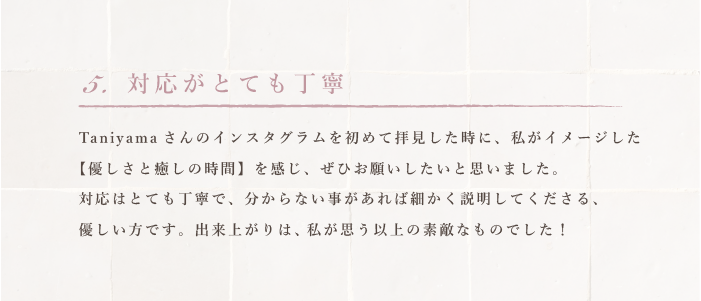 5. 対応がとても丁寧
Taniyama さんのインスタグラムを初めて拝見した時に、私がイメージした
【優しさと癒しの時間】を感じ、ぜひお願いしたいと思いました。
対応はとても丁寧で、分からない事があれば細かく説明してくださる、
優しい方です。出来上がりは、私が思う以上の素敵なものでした！